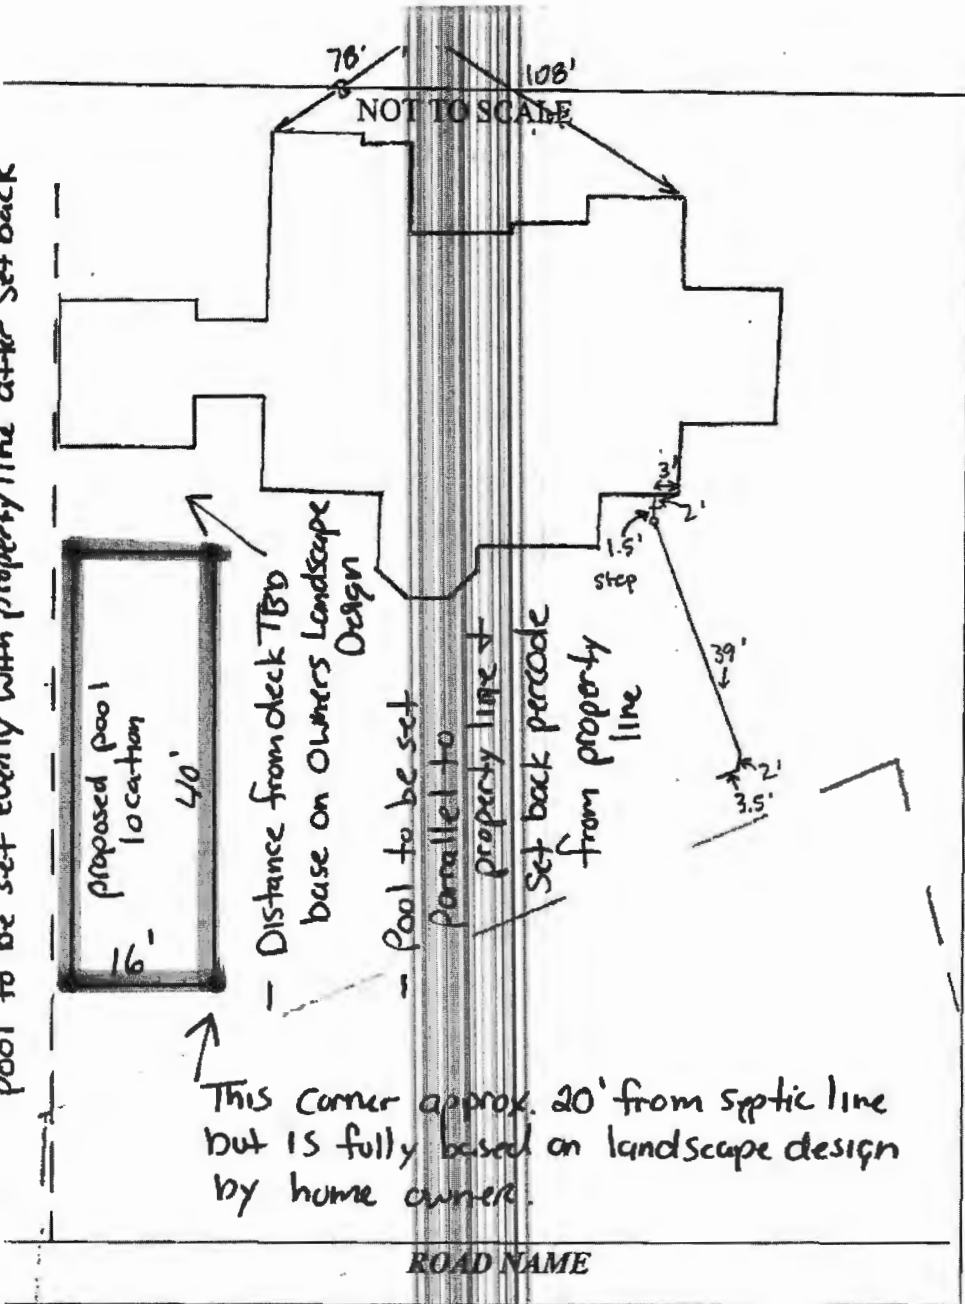 78'
108'
NOT TO SCALE
pool to be set evenly with property line after set back
3'
2'
1.5'
step
39'
2'
3.5'
proposed pool
location
40'
16'
- Distance from deck TBD
base on owners Landscape
Design
- Pool to be set
parallel to
property line +
Set back per code
from property
line
This corner approx. 20' from septic line
but is fully based on landscape design
by home owner.
ROAD NAME